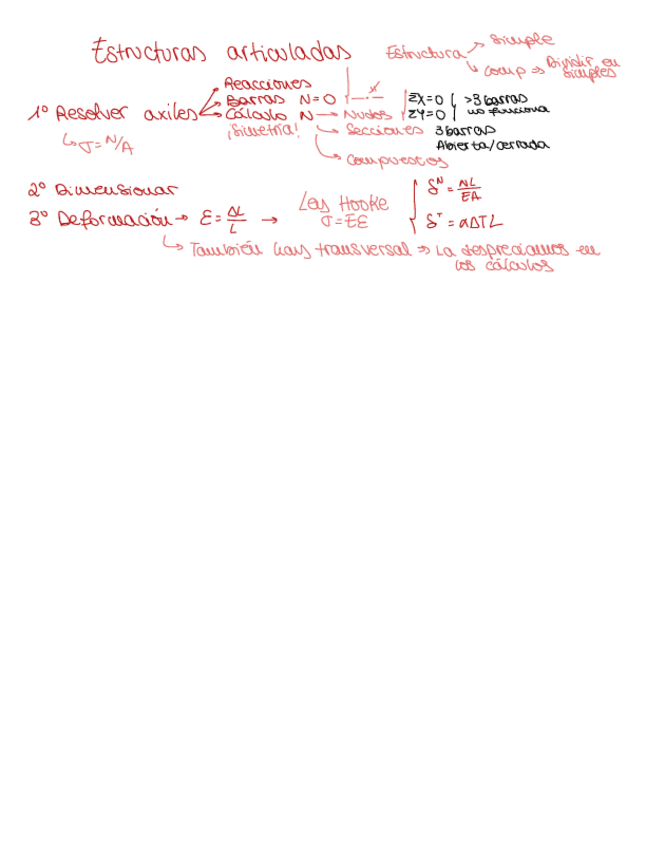 Estructuras articuladas
Estructura → Simple
↳ comp ⇒ Dividir en simples
1º Resolver axiles
↳ σ = N/A
Reacciones
Barras N=0
Cálculo N → Nudos
¡Simetría!
ΣX=0
ΣY=0
>3 barras
no funciona
↳ Secciones 3 barras
Abierta/cerrada
↳ Compuestos
2º Dimensionar
3º Deformación → ε = ΔL/L →
Ley Hooke
σ=Eε
δᴺ = NL/EA
δᵀ = αΔTL
↳ También hay transversal ⇒ La despreciamos en
los cálculos